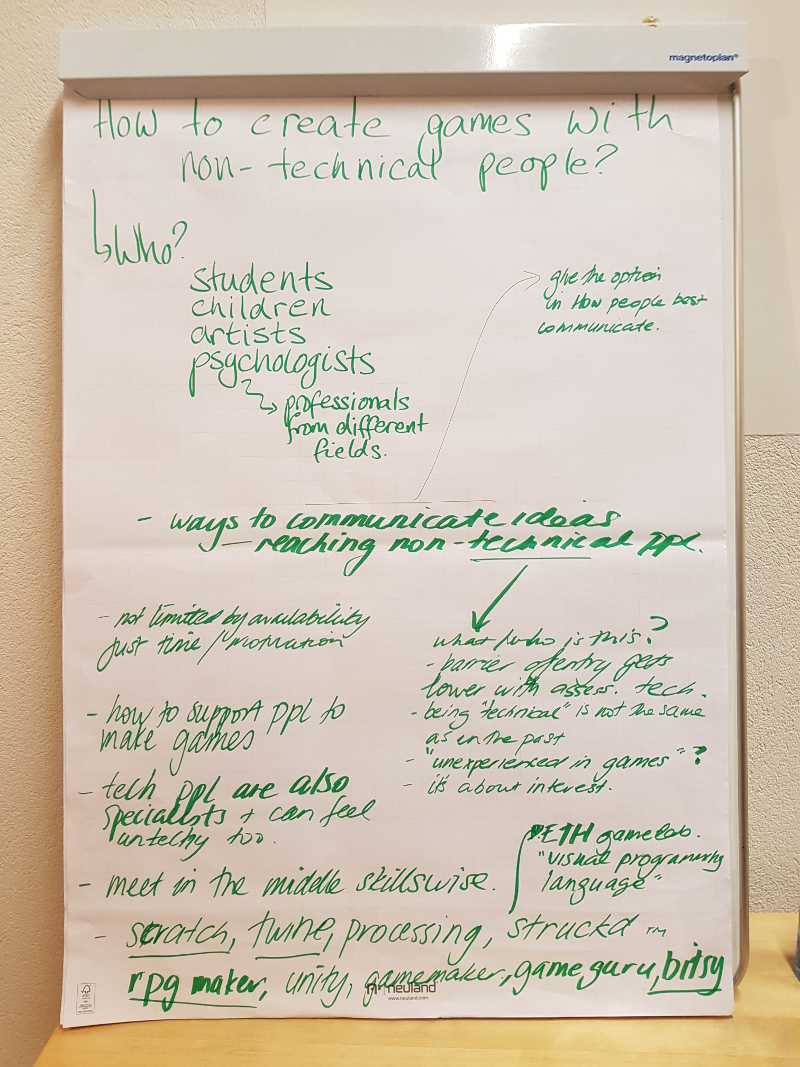 magnetoplan®
How to create games with
non-technical people?
Who?
students
children
artists
psychologists
professionals
from different
fields.
give the option
in how people best
communicate.
- ways to communicate ideas
- reaching non-technical ppl.
- not limited by availability
just time / motivation
- how to support ppl to
make games
- tech ppl are also
specialists + can feel
untechy too.
- meet in the middle skillswise.
what/who is this?
- barrier of entry gets
lower with assess. tech.
- being "technical" is not the same
as in the past
- "unexperienced in games"?
- it's about interest.
ETH gamelab.
"visual programming
language"
- scratch, twine, processing, struckd ™
rpg maker, unity, gamemaker, game guru, bitsy
neuland
www.neuland.com
FSC